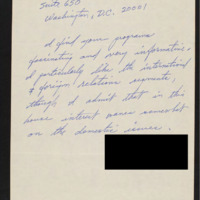 Suite 650
Washington, D.C. 20001
I find your programs
fascinating and very informative.
I particularly like the international
& foreign relations
though I admit that in this
house interest wanes somewhat
on the domestic issues.